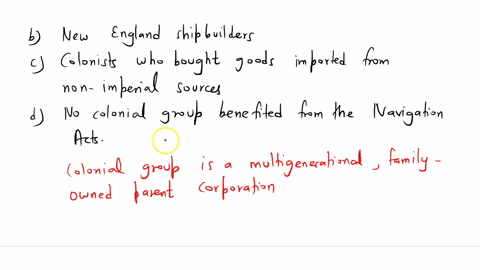 b) New England shipbuilders
c) Colonists who bought goods imported from
non-imperial sources
d) No colonial group benefited from the Navigation
Acts.
Colonial group is a multigenerational, family-
owned parent corporation